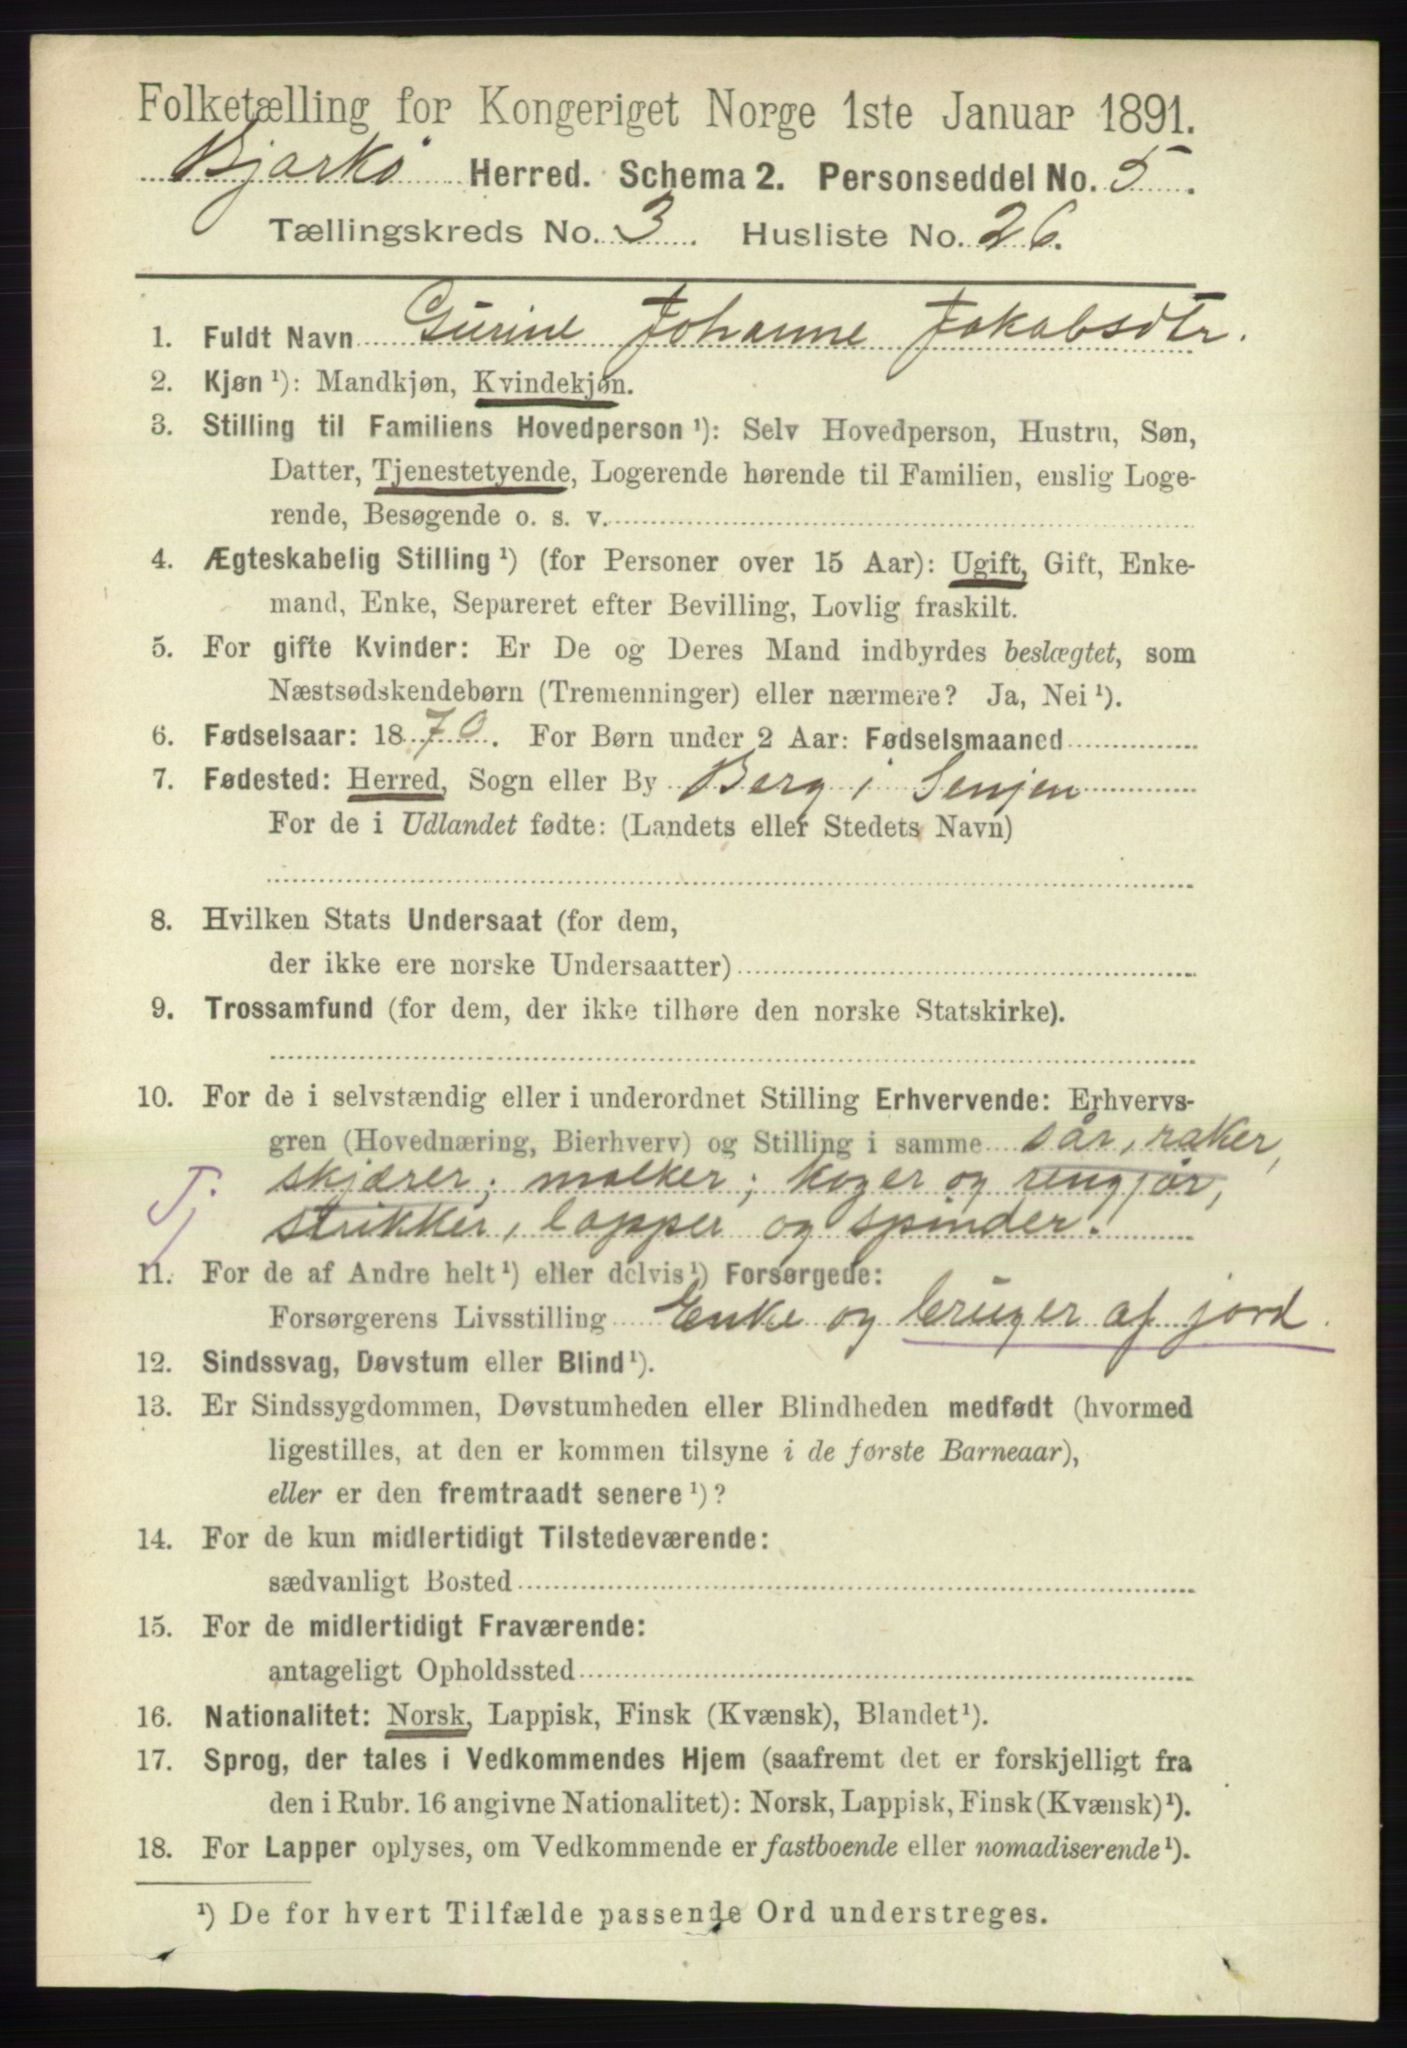 Folketælling for Kongeriget Norge 1ste Januar 1891.
Bjarkø Herred. Schema 2. Personseddel No. 5.
Tællingskreds No. 3. Husliste No. 26.
1. Fuldt Navn Gurine Johanne Jakobsdtr.
2. Kjøn ¹): Mandkjøn, Kvindekjøn.
3. Stilling til Familiens Hovedperson ¹): Selv Hovedperson, Hustru, Søn,
Datter, Tjenestetyende, Logerende hørende til Familien, enslig Loge-
rende, Besøgende o. s. v.
4. Ægteskabelig Stilling ¹) (for Personer over 15 Aar): Ugift, Gift, Enke-
mand, Enke, Separeret efter Bevilling, Lovlig fraskilt.
5. For gifte Kvinder: Er De og Deres Mand indbyrdes beslægtet, som
Næstsødskendebørn (Tremenninger) eller nærmere? Ja, Nei ¹).
6. Fødselsaar: 1870. For Børn under 2 Aar: Fødselsmaaned
7. Fødested: Herred, Sogn eller By Berg i Senjen
For de i Udlandet fødte: (Landets eller Stedets Navn)
8. Hvilken Stats Undersaat (for dem,
der ikke ere norske Undersaatter)
9. Trossamfund (for dem, der ikke tilhøre den norske Statskirke).
10. For de i selvstændig eller i underordnet Stilling Erhvervende: Erhvervs-
gren (Hovednæring, Bierhverv) og Stilling i samme sår, raker,
Tj skjærer; molker; koger og rengjør,
strikker, lapper og spinder.
11. For de af Andre helt ¹) eller delvis ¹) Forsørgede:
Forsørgerens Livsstilling Enke og bruger af jord.
12. Sindssvag, Døvstum eller Blind ¹).
13. Er Sindssygdommen, Døvstumheden eller Blindheden medfødt (hvormed
ligestilles, at den er kommen tilsyne i de første Barneaar),
eller er den fremtraadt senere ¹)?
14. For de kun midlertidigt Tilstedeværende:
sædvanligt Bosted
15. For de midlertidigt Fraværende:
antageligt Opholdssted
16. Nationalitet: Norsk, Lappisk, Finsk (Kvænsk), Blandet ¹).
17. Sprog, der tales i Vedkommendes Hjem (saafremt det er forskjelligt fra
den i Rubr. 16 angivne Nationalitet): Norsk, Lappisk, Finsk (Kvænsk) ¹).
18. For Lapper oplyses, om Vedkommende er fastboende eller nomadiserende ¹).
¹) De for hvert Tilfælde passende Ord understreges.